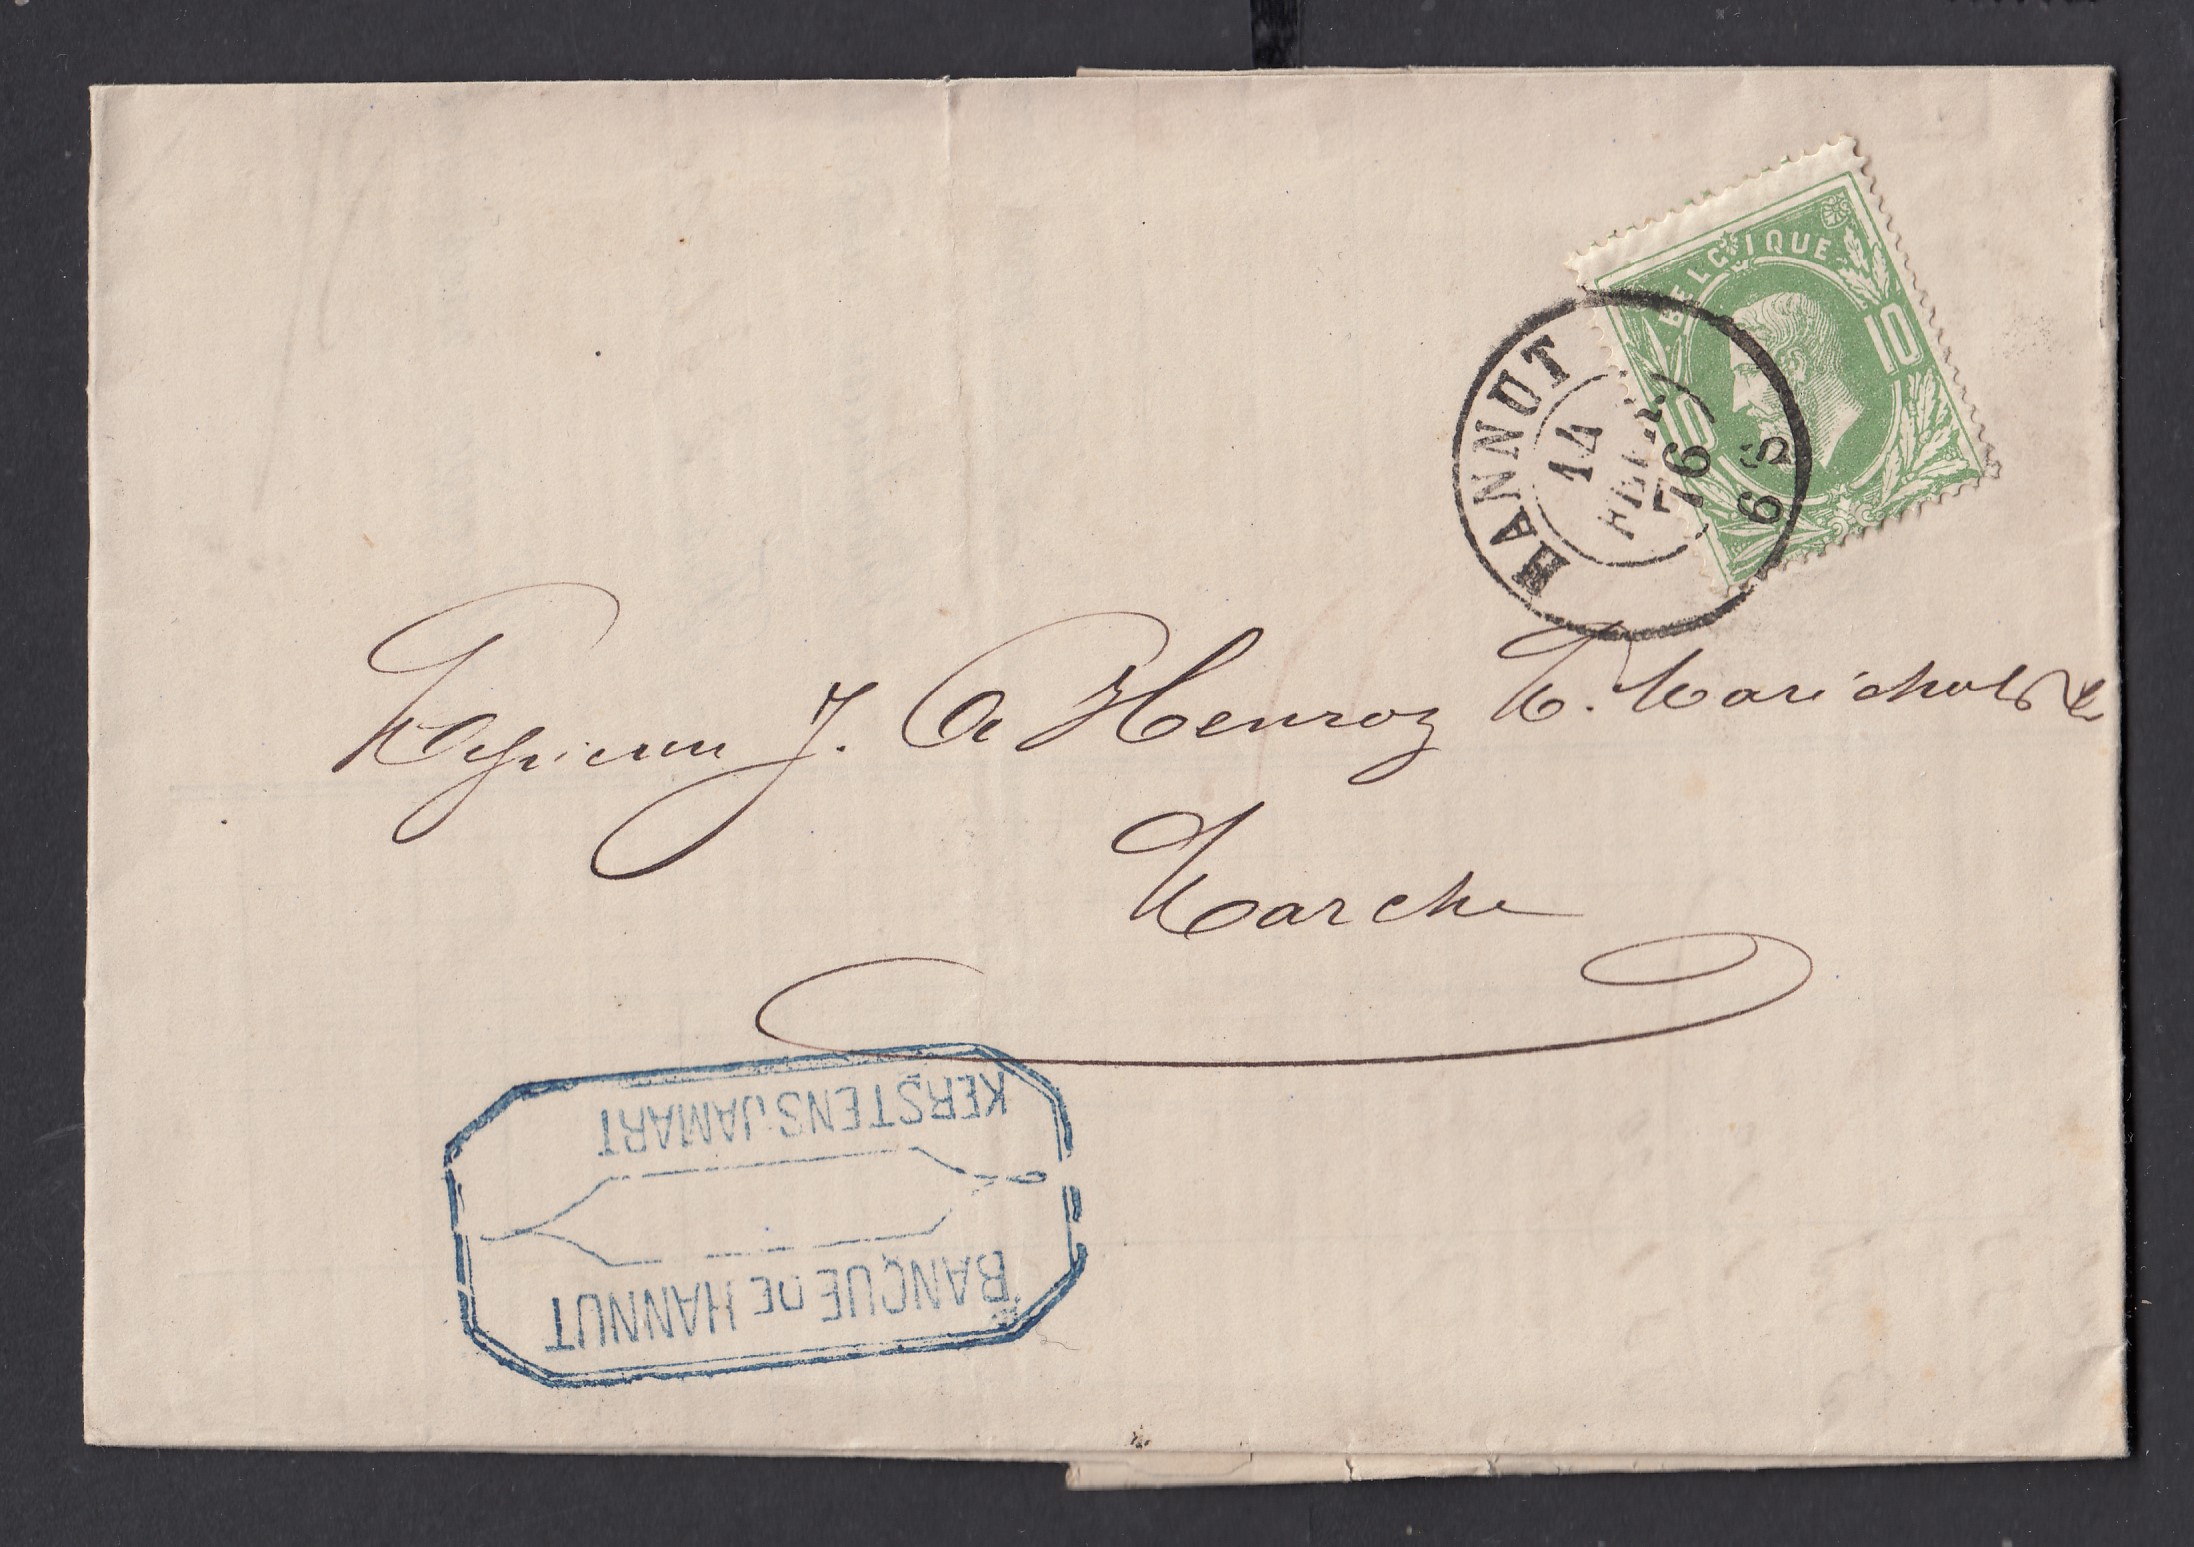 BELGIQUE
10
10
HANNUT
14
FEVR
76
6 S
J. A Henroz
Marche
BANQUE DE HANNUT
KERSTENS JAMART